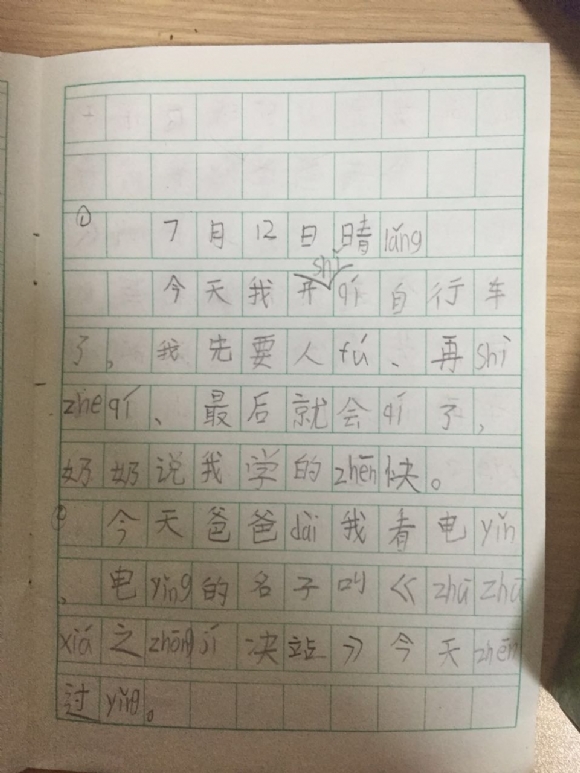 ① 7月12日晴lǎng
今天我开shǐ qí自行车
了,我先要人fú、再shì
zhe qí、最后就会qí了,
奶奶说我学的zhēn快。
② 今天爸爸dài我看电yǐn
、电yǐng的名子叫《zhū zhū
xiá之zhōng jí决站》今天zhēn
过yǐng。